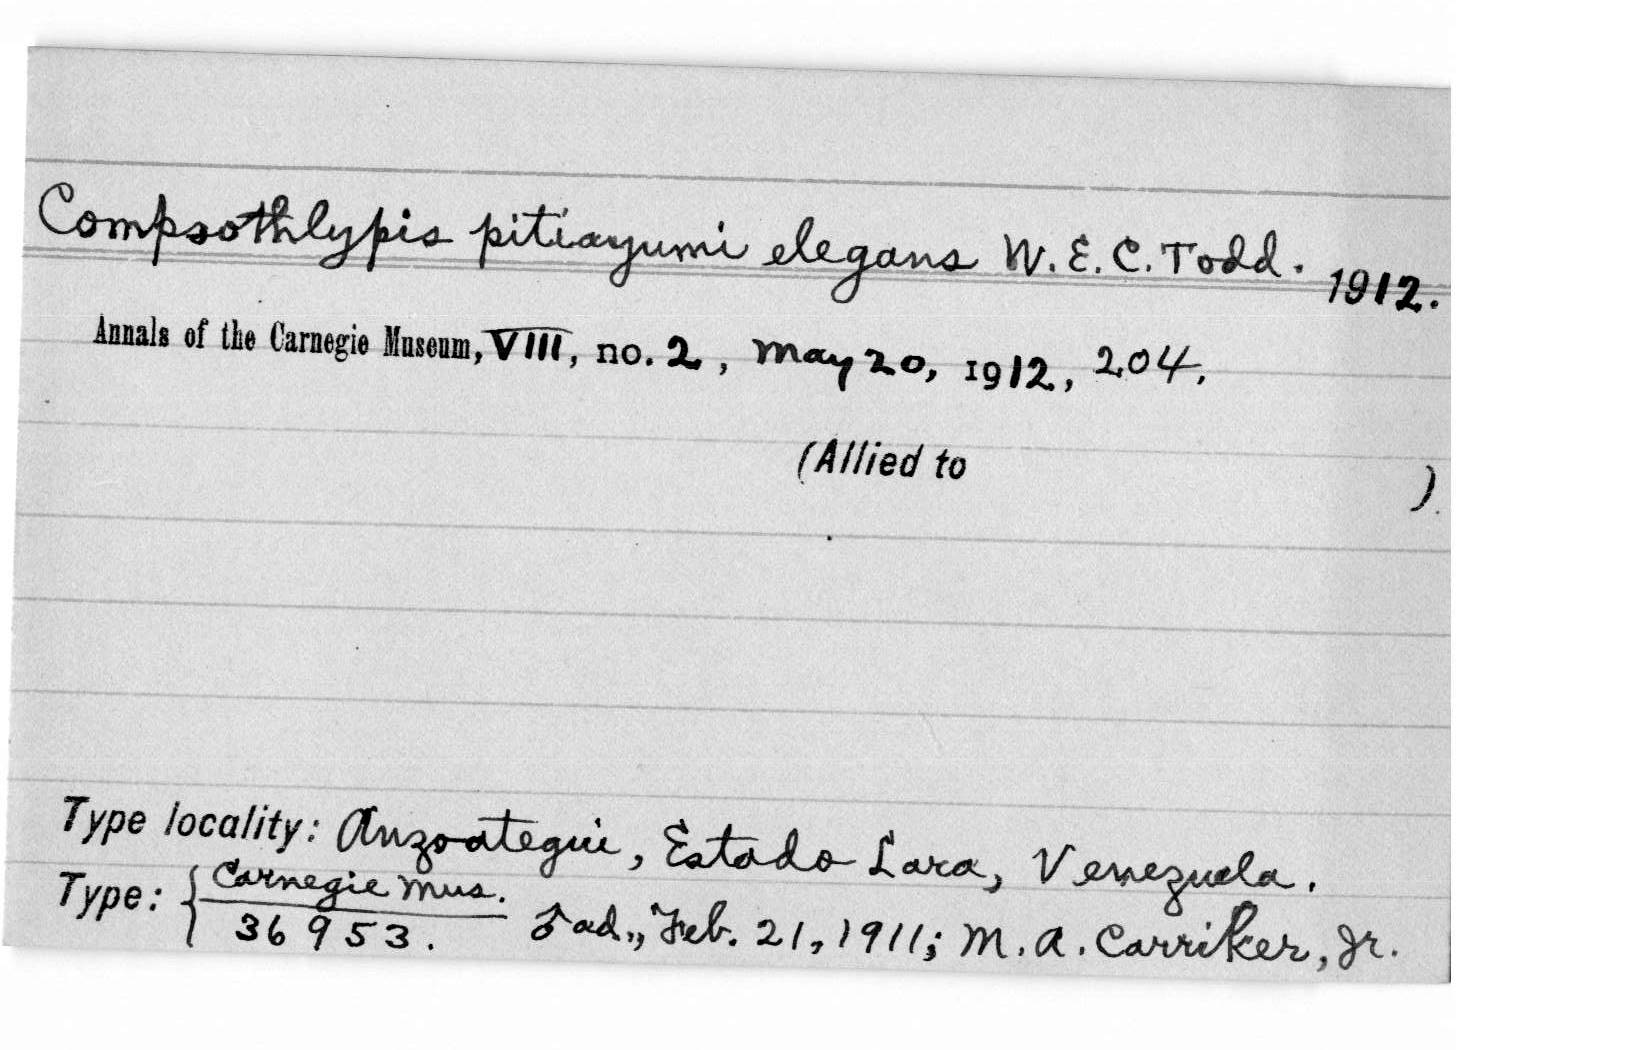 Compsothlypis pitiayumi elegans W. E. C. Todd. 1912.
Annals of the Carnegie Museum, VIII, no. 2, May 20, 1912, 204.
(Allied to )
Type locality: Anzoategui, Estado Lara, Venezuela.
Type: { Carnegie Mus.
36953. ♂ ad., Feb. 21, 1911; M. A. Carriker, Jr.